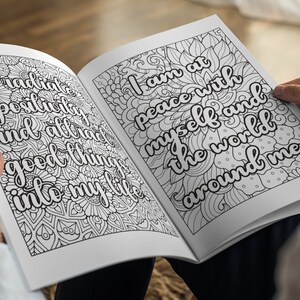 radiate
positivity
and attract
good things
into my life
I am at
peace with
myself and
the world
around me